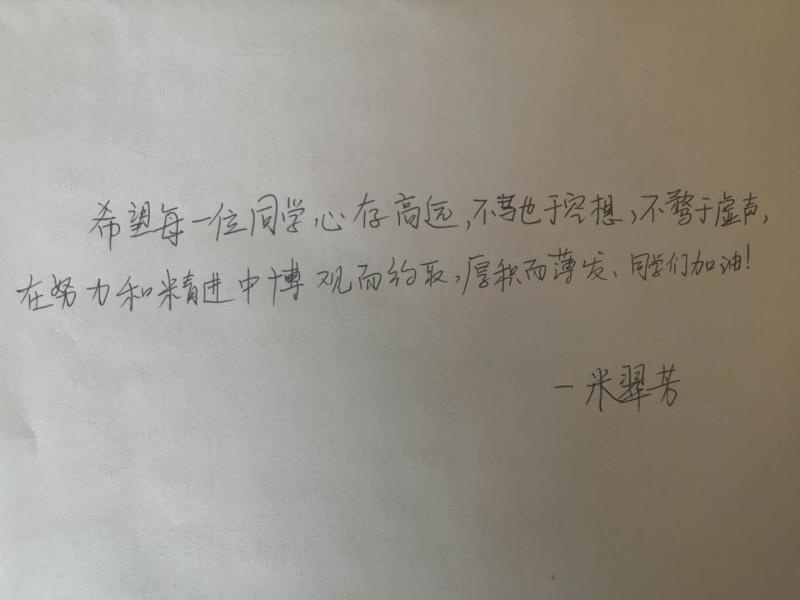 希望每一位同学心存高远,不驰于空想,不骛于虚声,
在努力和精进中博观而约取,厚积而薄发、同学们加油!
一米翠芳